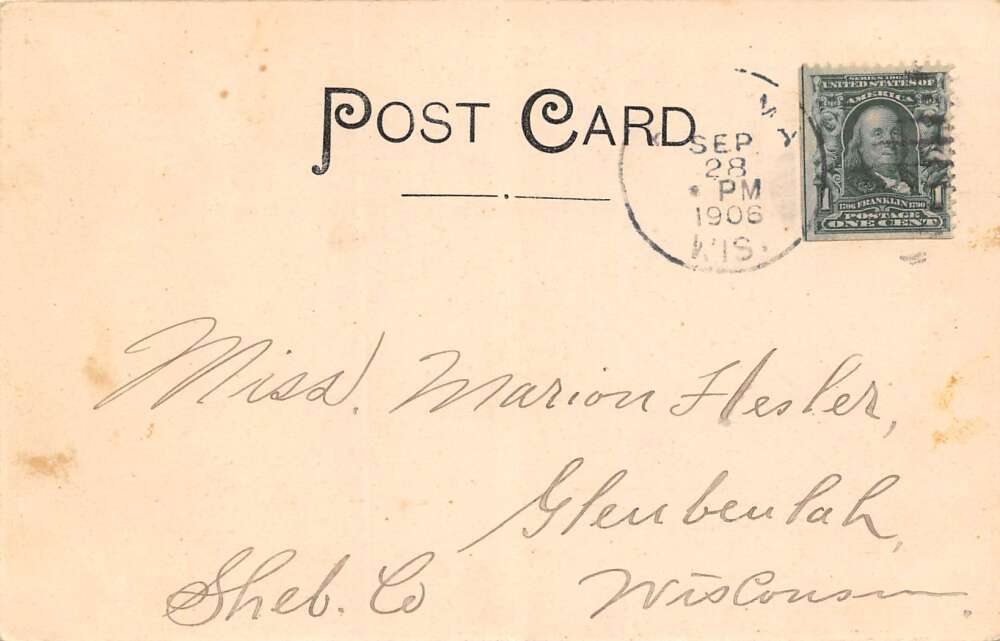 POST CARD
SEP.
28
PM
1906
WIS.
SERIES 1902
UNITED STATES OF
AMERICA
1706 FRANKLIN 1790
1 1
POSTAGE
ONE CENT
Miss. Marion Hesler,
Glenbeulah,
Sheb. Co Wisconsin.